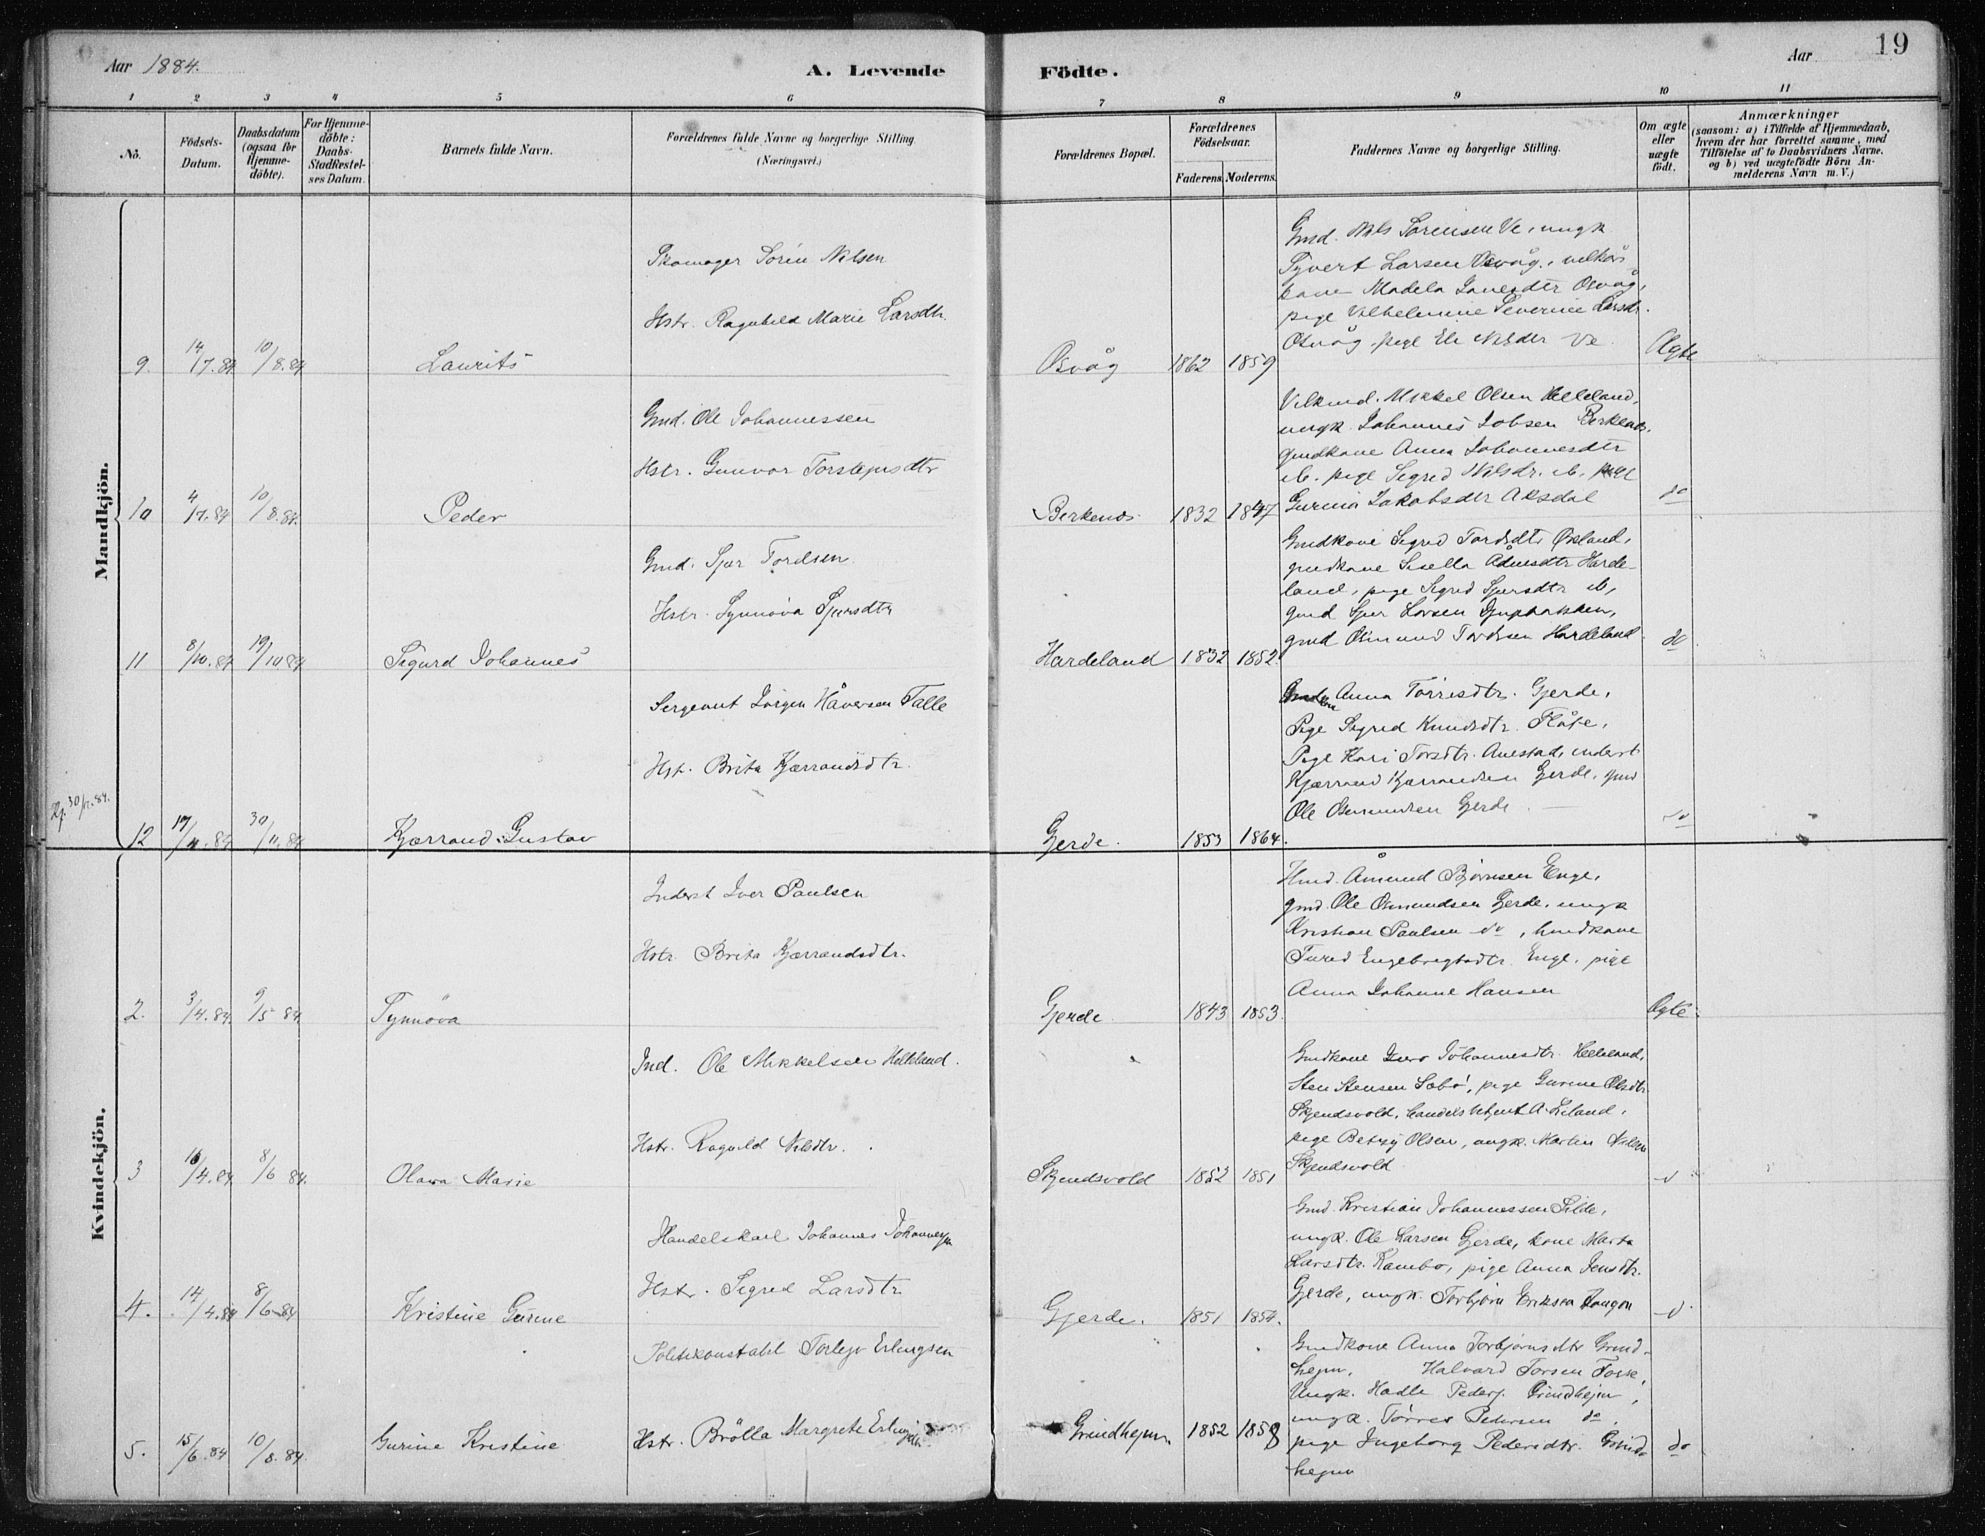 Aar 1884.
A. Levende
Födte.
Aar
19
1 2 3 4 5 6 7 8 9 10 11
No.
Födsels-
Datum.
Daabsdatum
(ogsaa for
Hjemme-
döbte).
For Hjemme-
döbte:
Daabs-
Stadfæstel-
ses Datum.
Barnets fulde Navn.
Forældrenes fulde Navne og borgerlige Stilling
(Næringsvei.)
Forældrenes Bopæl.
Forældrenes
Födselsaar.
Faderens. Moderens.
Faddernes Navne og borgerlige Stilling.
Om ægte
eller
uægte
födt.
Anmærkninger
(saasom: a) i Tilfælde af Hjemmedaab,
hvem der har forrettet samme, med
Tilföielse af to Daabsvidners Navne.
og b) ved uægtefödte Börn An-
melderens Navn m. V.)
Mandkjön.
9. 14/7.84 10/8.84 Laurits
Skomager Sörin Nilsen
Hstr. Ragnhild Marie Larsdtr.
Osvåg 1862 1859
Gmd. Nils Sörensen Ve, ungk
Syvert Larsen Osvåg, vilkårs
kone Madela Osvåg,
pige Vilhelmine Severine Larsdr.
Osvåg, pige Eli Nilsdtr Ve
Ægte
10 4/7.84 10/8.84. Peder
Gmd. Ole Johannessen
Hstr. Gunvor Torstejnsdtr
Berkenes 1832 1847
Vilkmd. Mikkel Olsen Helleland,
ungk. Johannes Jobsen Berkenes,
gmdkone Anna Johannesdtr
ib. pige Sigred Nilsdr. ib. pige
Gurina Jakobsdtr Aksdal
do
11 8/10.84 19/10 84 Sigurd Johannes
Gmd. Sjur Tordsen
Hstr. Synnöva Sjursdtr
Hardeland 1832 1852.
Gmdkone Sigred Tordsdtr Öxland,
gmdkone Sisella Harde-
land, pige Sigred Sjursdtr ib,
gmd Sjur Larsen
gmd Osmund Tordsen Hardeland
do
Hj. 30/12.84.
12 17/11.84 30/11.84 Kjærrand Gustav
Sergeant Jörgen Håversen Talle
Hst. Brita Kjærrandsdtr.
Gjerde. 1853 1864.
Anna Törresdtr. Gjerde,
Pige Sigred Knudsdtr. Flåte,
Pige Kari Torsdtr. Anestad, inderst
Kjærrand Kjærrandsen Gjerde, gmd
Ole Osmundsen Gjerde
do
Kvindekjön.
2. 3/4.84. 9/5 84 Synnöva
Inderst Iver Paulsen
Hstr. Brita Kjærrandsdtr.
Gjerde 1843 1853.
Hmd. Åmund Björnsen Enge,
gmd. Ole Osmundsen Gjerde, ungk
Kristian Paulsen do, hmdkone
Tured Engebregtsdtr. Enge, pige
Anna Johanne Hansen
Ægte
3 16/4.84 8/6 84. Olava Marie
Ind. Ole Mikkelsen Helleland.
Hstr. Ragnild Nilsdtr.
Skjendsvold 1852 1851
Gmdkone Johannesdtr. Helleland,
Sten Stensen Sæbö, pige Gurine Olsdtr.
Skjendsvold, handelsbetjent A. Leland,
pige Betzy Olsen, ungk. Martin Nilsen
Skjendsvold
4. 14/4.84 8/6 84 Kristine Gurine
Handelskarl Johannes Johannesen
Hstr. Sigred Larsdtr
Gjerde. 1851 1854.
Gmd. Kristian Johannessen Silde,
ungk. Ole Larsen Gjerde, kone Marta
Larsdtr. Rambö, pige Anna Jensdtr.
Gjerde, ungk. Torbjörn Eriksen Haugen
5. 15/6.84 10/8.84 Gurine Kristine
Politikonstabel Torlejv Erlingsen
Hstr. Brölla Margrete Erlingsdtr
Grindhejm 1852 1858
Gmdkone Anna Torbjörnsdtr Grind-
hejm, Halvard Torsen Foske,
Ungk. Hadle Peders. Grindhejm,
ungk. Törres Pedersen do,
pige Ingeborg Pedersdtr. Grind-
hejm
do